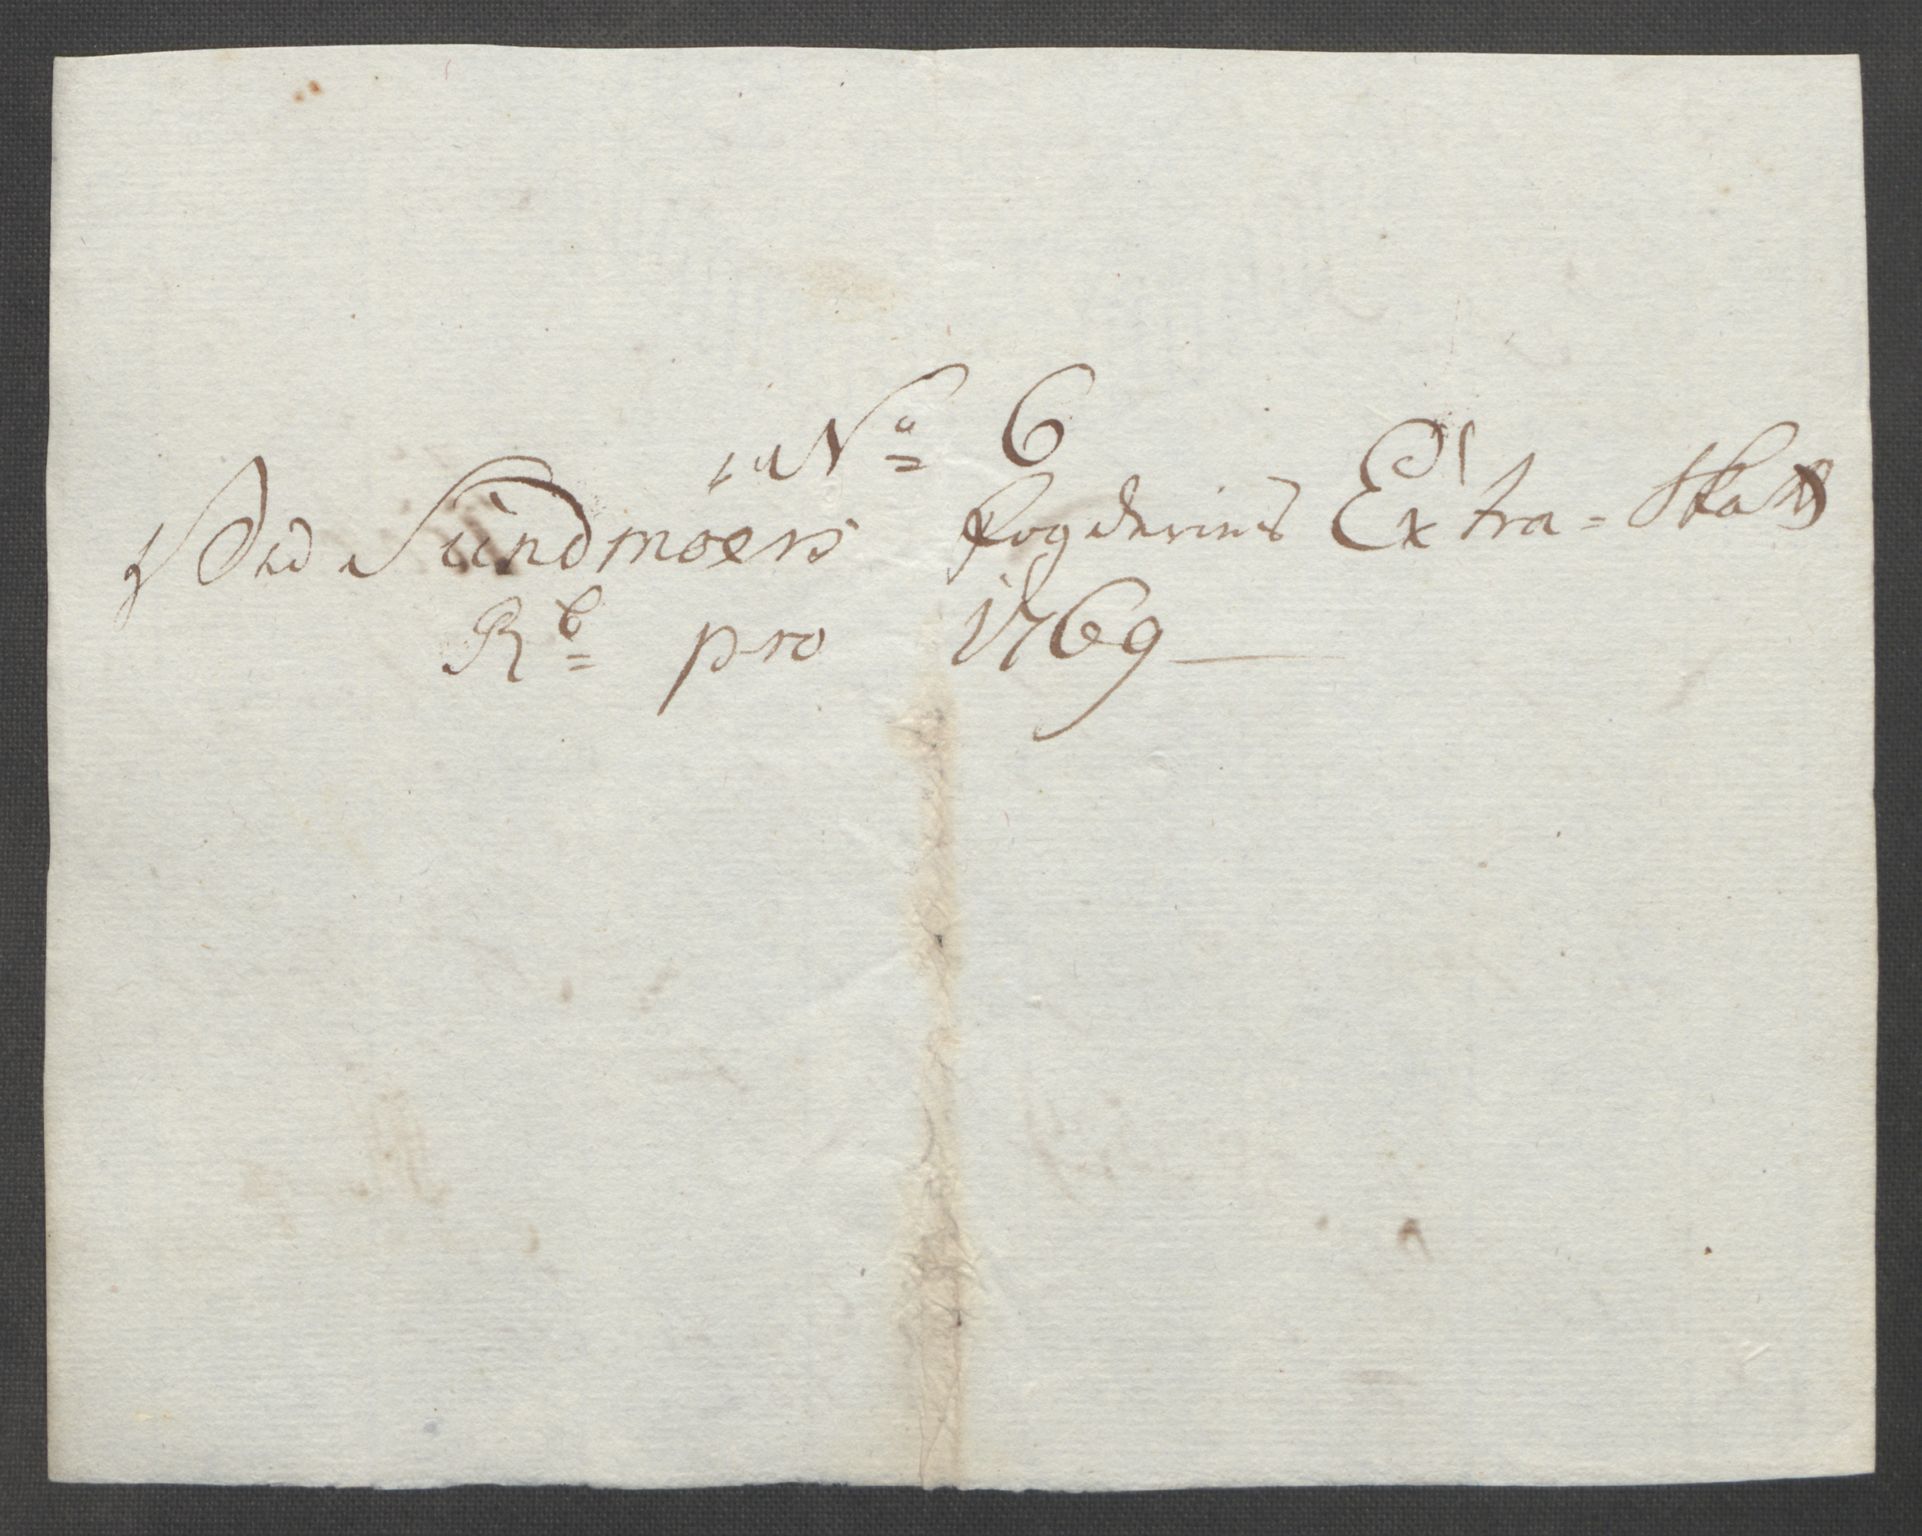 No 6
Ved Sundmoers Fogderies Extra-Skatts
Rb pro 1769